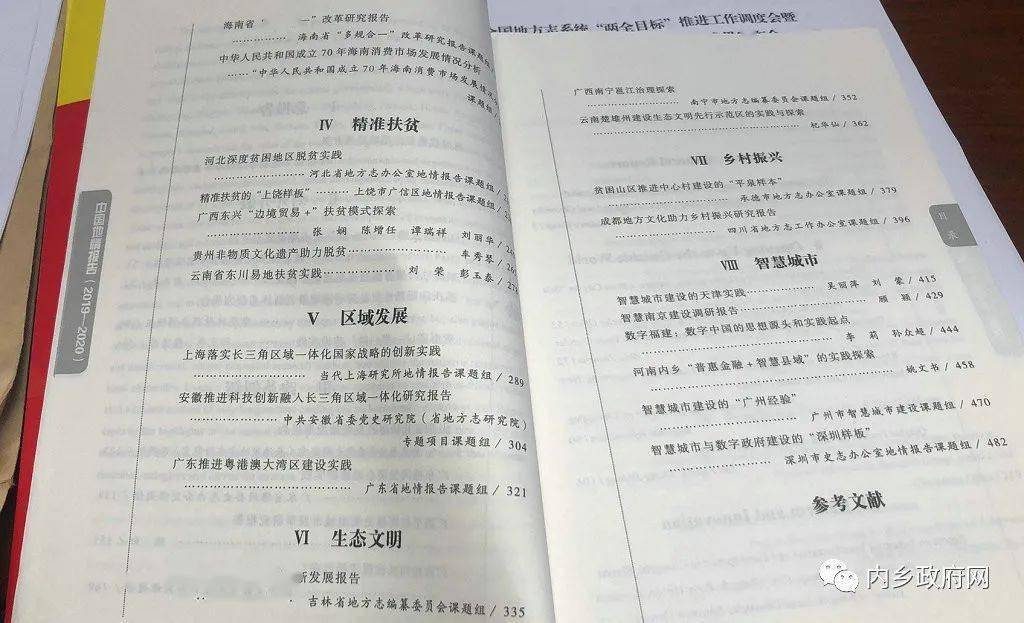 海南省 一”改革研究报告
海南省“多规合一”改革研究报告课题组/
中华人民共和国成立70年海南消费市场发展情况分析
……“中华人民共和国成立70年海南消费市场发展情况
课题组/
Ⅳ 精准扶贫
河北深度贫困地区脱贫实践
河北省地方志办公室地情报告课题组/
精准扶贫的“上饶样板”……上饶市广信区地情报告课题组/
广西东兴“边境贸易+”扶贫模式探索
张娴 陈增任 谭瑞祥 刘丽华/
贵州非物质文化遗产助力脱贫……牟秀琴/
云南省东川易地扶贫实践……刘荣 彭玉泰/
Ⅴ 区域发展
上海落实长三角区域一体化国家战略的创新实践
当代上海研究所地情报告课题组/289
安徽推进科技创新融入长三角区域一体化研究报告
中共安徽省委党史研究院(省地方志研究院)
专题项目课题组/304
广东推进粤港澳大湾区建设实践
广东省地情报告课题组/321
Ⅵ 生态文明
发展报告
吉林省地方志编纂委员会课题组/335
中国地情报告(2019—2020)
国地方志系统“两全目标”推进工作调度会暨
广西南宁邕江治理探索
南宁市地方志编纂委员会课题组/352
云南楚雄州建设生态文明先行示范区的实践与探索
杞华仙/362
Ⅶ 乡村振兴
贫困山区推进中心村建设的“平泉样本”
承德市地方志办公室课题组/379
成都地方文化助力乡村振兴研究报告
四川省地方志工作办公室课题组/396
Ⅷ 智慧城市
智慧城市建设的天津实践……吴丽萍 刘蒙/415
智慧南京建设调研报告……顾颖/429
数字福建:数字中国的思想源头和实践起点
李莉 孙众超/444
河南内乡“普惠金融+智慧县域”的实践探索
姚文书/458
智慧城市建设的“广州经验”
广州市智慧城市建设课题组/470
智慧城市与数字政府建设的“深圳样板”
深圳市史志办公室地情报告课题组/482
参考文献
目录
内乡政府网